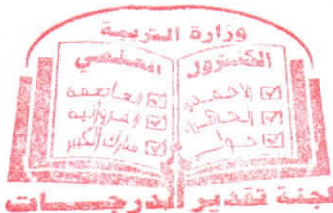 وزارة التربية
الكنترول
المعلمي
الأحمدي
الجهراء
حولي
العاصمة
الفروانية
مبارك الكبير
لجنة تقدير الدرجات